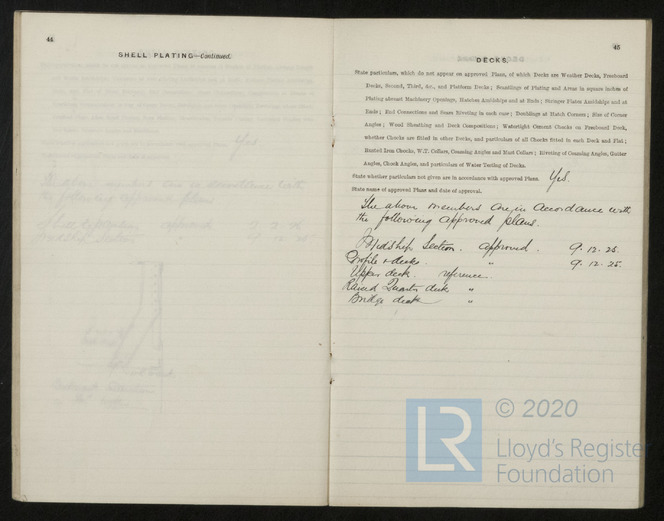 44
SHELL PLATING—Continued.
45
DECKS.
State particulars, which do not appear on approved Plans, of which Decks are Weather Decks, Freeboard
Decks, Second, Third, &c., and Platform Decks; Scantlings of Plating and Areas in square inches of
Plating abreast Machinery Openings, Hatches Amidships and at Ends; Stringer Plates Amidships and at
Ends; End Connections and Seam Riveting in each case; Doublings at Hatch Corners; Size of Corner
Angles; Wood Sheathing and Deck Compositions; Watertight Cement Chocks on Freeboard Deck,
whether Chocks are fitted in other Decks, and particulars of all Chocks fitted in each Deck and Flat;
Rusted Iron Chocks, W.T. Collars, Coaming Angles and Mast Collars; Riveting of Coaming Angles, Gutter
Angles, Chock Angles, and particulars of Water Testing of Decks.
State whether particulars not given are in accordance with approved Plans. Yes.
State name of approved Plans and date of approval.
The above members are in accordance with
the following approved plans.
Midship Section. approved. 9. 12. 25.
Profile & decks. " 9. 12. 25.
Upper deck. reference.
Raised Quarter deck "
Bridge deck "
© 2020
LR
Lloyd's Register
Foundation